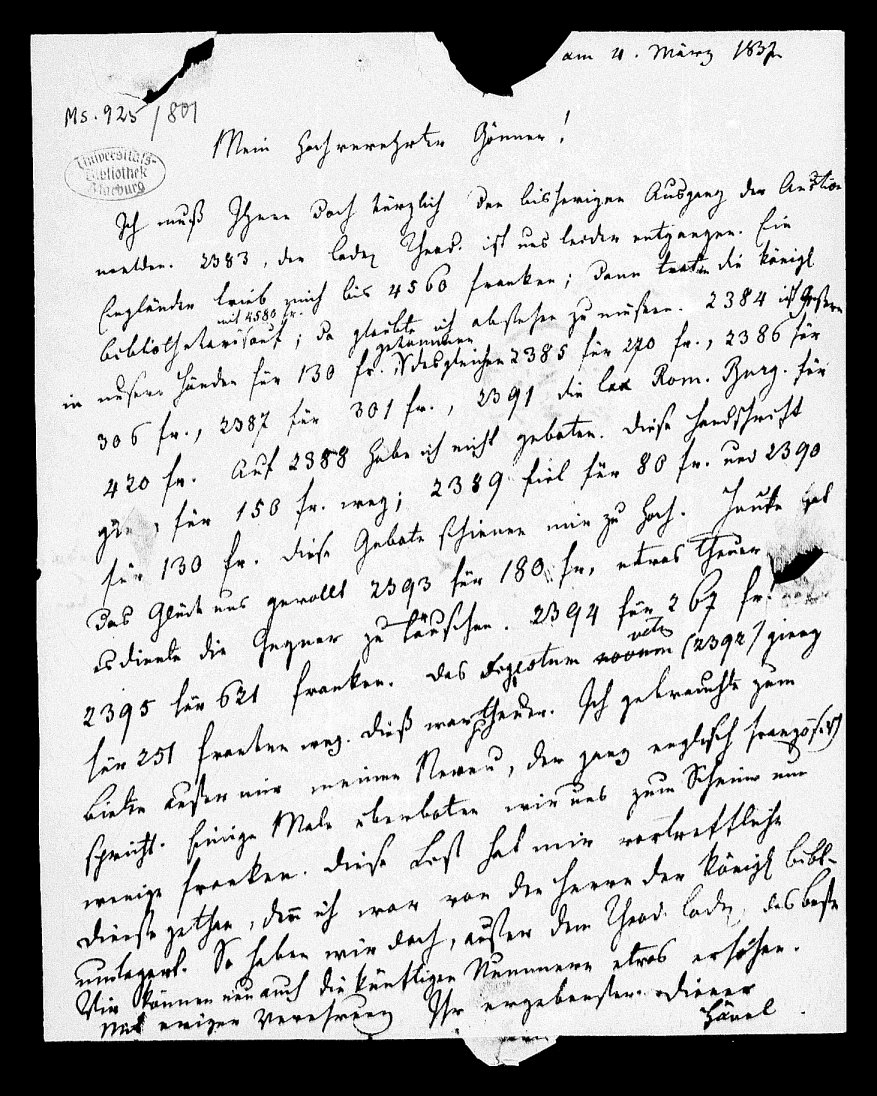 am 4. März 1837
Ms. 925/801
Universitäts-
Bibliothek
Marburg
Mein hochverehrter Gönner!
Ich muß Ihnen doch kürzlich den bisherigen Ausgang der Auction
melden. 2383, der Codex Theod. ist uns leider entgangen. Ein
Engländer trieb mich bis 4560 Franken; dann traten die königl
mit 4580 fr.
bibliothekare auf; da glaubte ich abstehen zu müssen. 2384 ist gestern
gekommen
in unsere Hände für 130 fr. desgleichen 2385 für 270 fr., 2386 für
306 fr., 2387 für 301 fr., 2391 die lex Rom. Burg. für
420 fr. Auf 2388 habe ich nicht geboten. Diese Handschrift
gieng für 150 fr. weg; 2389 fiel für 80 fr. und 2390
für 130 fr. Diese Gebote schienen mir zu hoch. Heute hat
das Glück uns gewollt 2393 für 180 fr., etwas theuer
es diente die Gegner zu täuschen. 2394 für 267 fr.
2395 für 621 Franken. Das Digestum novum (2392) gieng
vetus
für 251 Franken weg. Dieß war zu theuer. Ich gebrauchte zum
Bieten außer mir meinen Neveu, der ganz englisch französisch
spricht. Einige Male überboten wir uns zum Schein um
wenige Franken. Diese List hat mir vortreffliche
Dienste gethan, denn ich war von den Herrn der königl bibl-
umlagert. So haben wir doch, außer dem Theod. Codex, das beste
Wir können nun auch die künftigen Nummern etwas erhöhen.
Mit ewiger Verehrung Ihr ergebenster Diener
Hänel